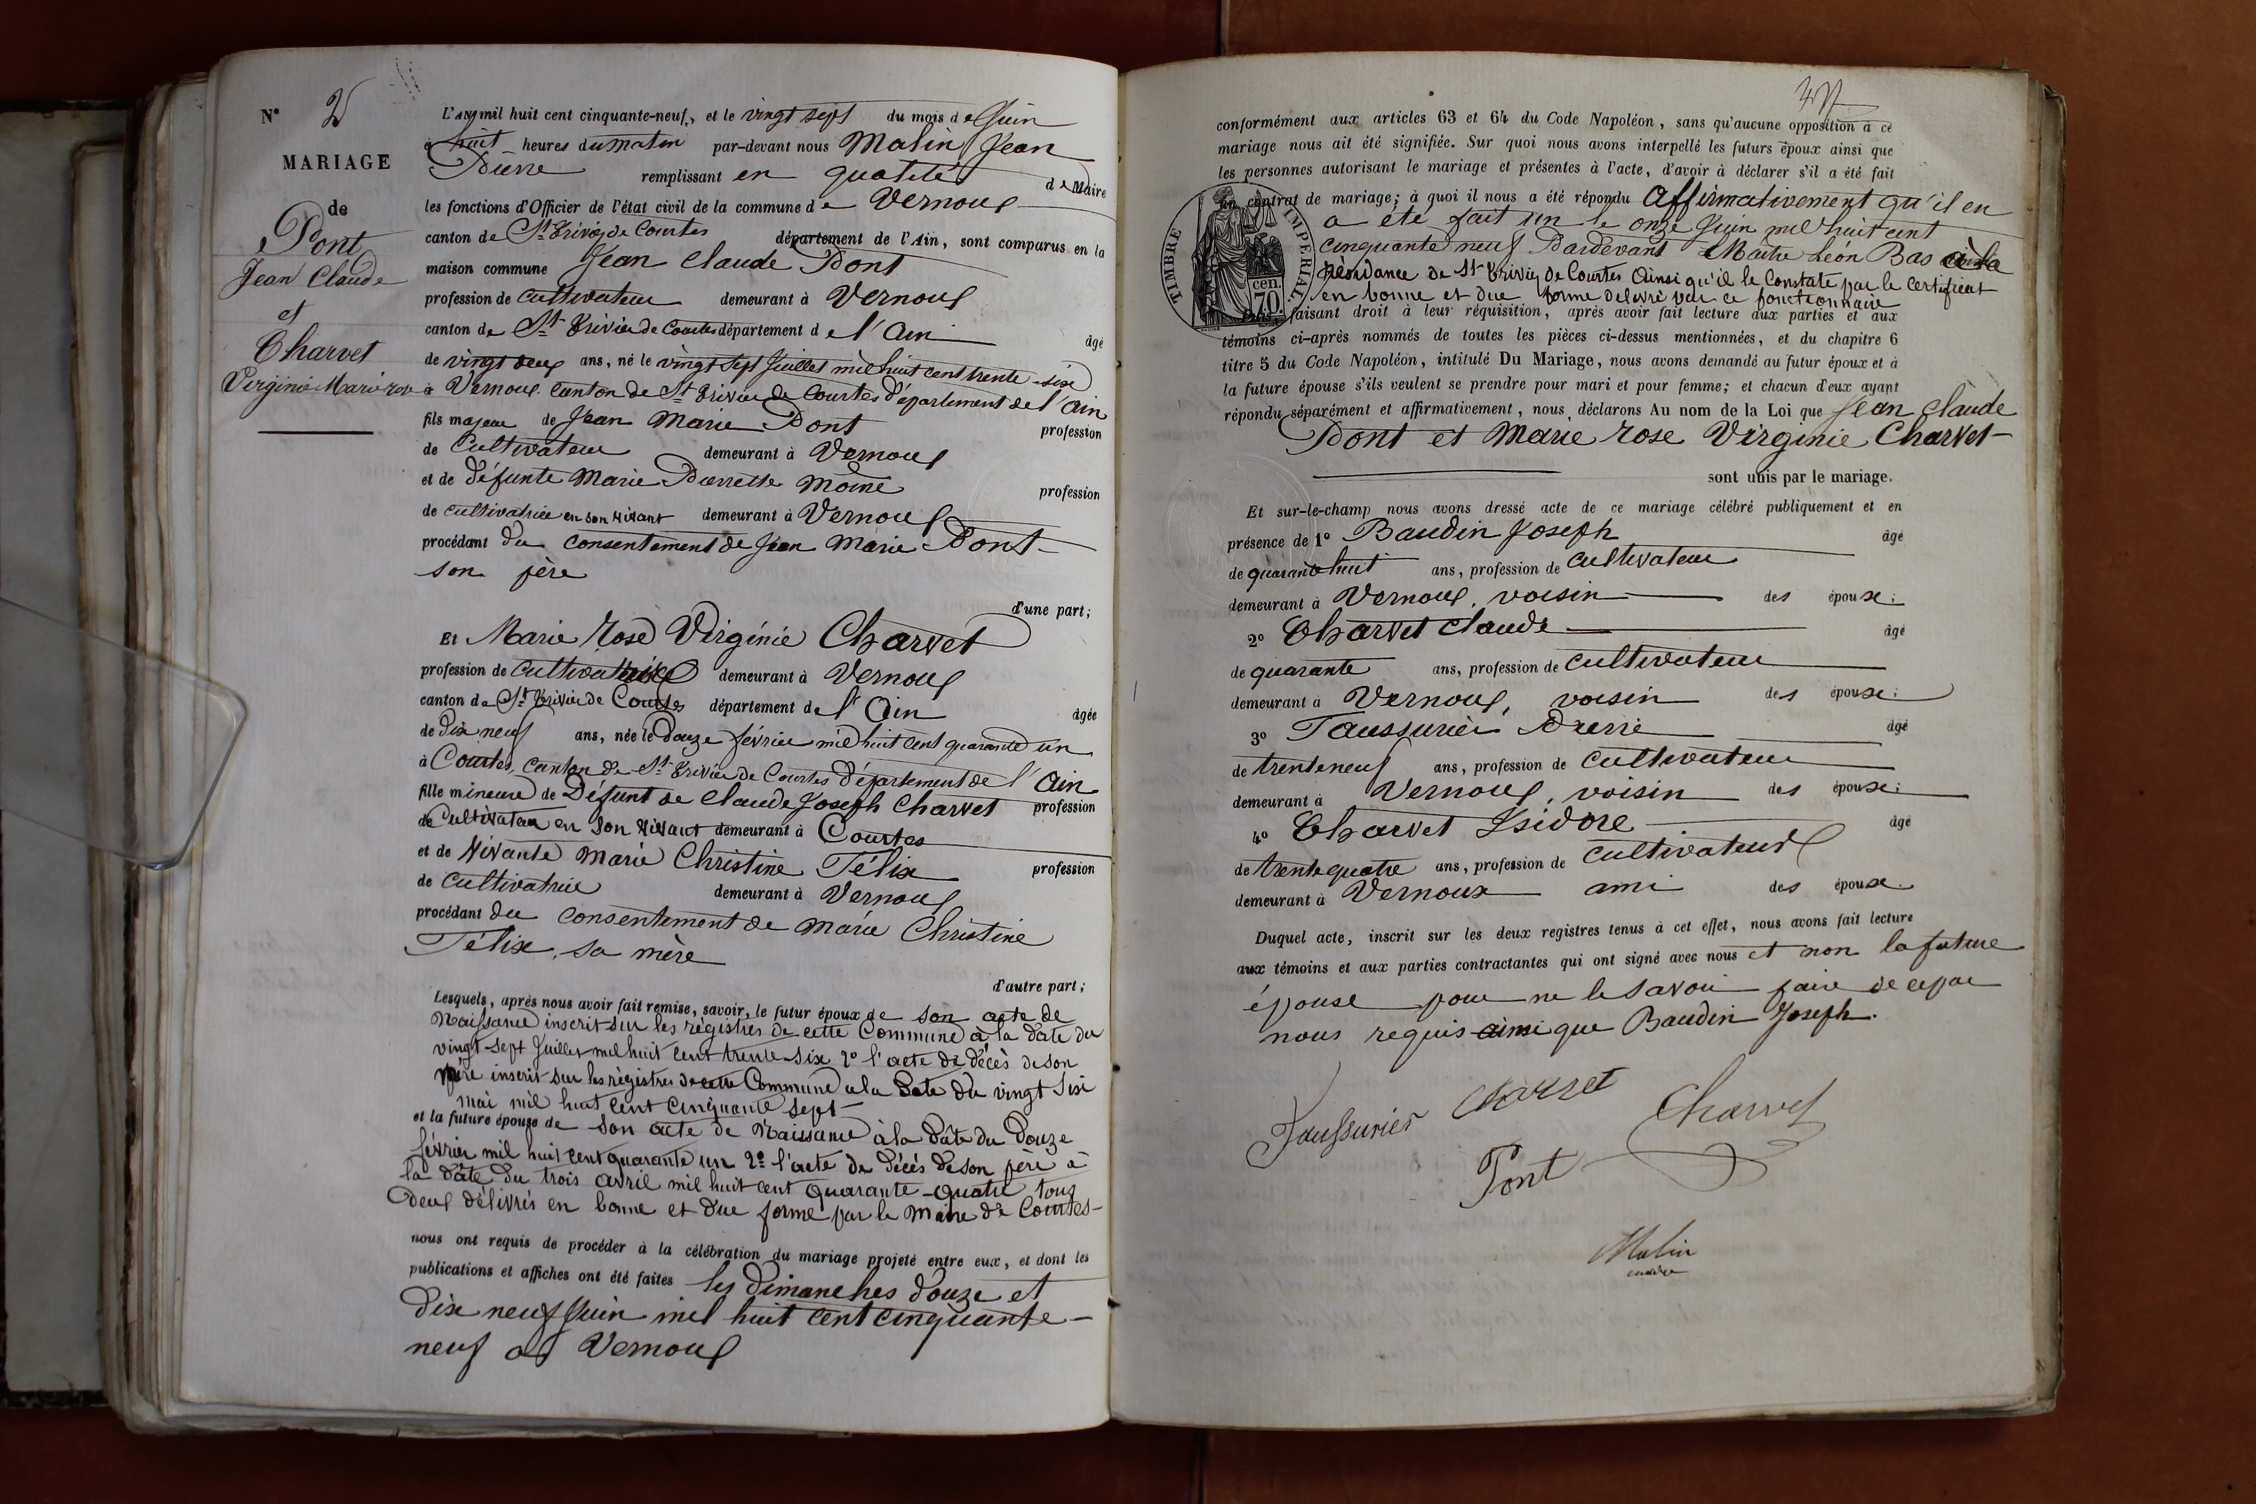 N° 2
MARIAGE
de
Pont
Jean Claude
et
Charvet
Virginie Marie rose
L'an mil huit cent cinquante-neuf, et le vingt sept du mois de Juin
à huit heures du matin par-devant nous Malin Jean
Pierre remplissant en qualité de Maire
les fonctions d'Officier de l'état civil de la commune de Vernoux
canton de St Trivier de Courtes département de l'Ain, sont comparus en la
maison commune Jean Claude Pont
profession de cultivateur demeurant à Vernoux
canton de St Trivier de Courtes département de l'Ain âgé
de vingt deux ans, né le vingt sept Juillet mil huit cent trente-six
à Vernoux canton de St Trivier de Courtes département de l'Ain
fils majeur de Jean Marie Pont profession
de Cultivateur demeurant à Vernoux
et de défunte Marie Pierrette Moine profession
de cultivatrice en son vivant demeurant à Vernoux
procédant du consentement de Jean Marie Pont
son père
d'une part;
Et Marie rose Virginie Charvet
profession de cultivatrice demeurant à Vernoux
canton de St Trivier de Courtes département de l'Ain âgée
de Dix neuf ans, née le Douze février mil huit cent quarante un
à Courtes, canton de St Trivier de Courtes département de l'Ain
fille mineure de Défunt de Claude Joseph Charvet profession
de Cultivateur en son vivant demeurant à Courtes
et de vivante Marie Christine Félix profession
de cultivatrice demeurant à Vernoux
procédant du consentement de Marie Christine
Félix, sa mère
d'autre part;
Lesquels, après nous avoir fait remise, savoir, le futur époux de son acte de
Naissance inscrit sur les régistres de cette Commune à la date du
vingt-sept Juillet mil huit cent trente-six 2° l'acte de décès de son
mère inscrit sur les régistres de cette Commune a la Date du vingt six
mai mil huit cent cinquante sept
et la future épouse de son acte de Naissance à la Date du Douze
février mil huit cent quarante un 2° l'acte de décès de son père à
la date du trois avril mil huit cent quarante-quatre tous
Deux délivrés en bonne et due forme par le Maire de Courtes
nous ont requis de procéder à la célébration du mariage projeté entre eux, et dont les
publications et affiches ont été faites les Dimanches Douze et
Dix neuf Juin mil huit cent cinquante
neuf à Vernoux
conformément aux articles 63 et 64 du Code Napoléon, sans qu'aucune opposition à ce
mariage nous ait été signifiée. Sur quoi nous avons interpellé les futurs époux ainsi que
les personnes autorisant le mariage et présentes à l'acte, d'avoir à déclarer s'il a été fait
un contrat de mariage; à quoi il nous a été répondu Affirmativement qu'il en
a été fait un le onze Juin mil huit cent
cinquante neuf Pardevant Maître Léon Bas à la
résidance de St Trivier de Courtes Ainsi qu'il le Constate par le certificat
en bonne et due forme delivré par ce fonctionnaire
TIMBRE IMPERIAL
cen.
70.
faisant droit à leur réquisition, après avoir fait lecture aux parties et aux
témoins ci-après nommés de toutes les pièces ci-dessus mentionnées, et du chapitre 6
titre 5 du Code Napoléon, intitulé Du Mariage, nous avons demandé au futur époux et à
la future épouse s'ils veulent se prendre pour mari et pour femme; et chacun d'eux ayant
répondu séparément et affirmativement, nous, déclarons Au nom de la Loi que Jean Claude
Pont et Marie rose Virginie Charvet
sont unis par le mariage.
Et sur-le-champ nous avons dressé acte de ce mariage célébré publiquement et en
présence de 1° Baudin Joseph âgé
de quarante huit ans, profession de cultivateur
demeurant à Vernoux, voisin des époux;
2° Charvet Claude âgé
de quarante ans, profession de cultivateur
demeurant à Vernoux, voisin des époux;
3° Faussurier Pierre âgé
de trente neuf ans, profession de cultivateur
demeurant à Vernoux, voisin des époux;
4° Charvet Isidore âgé
de trente quatre ans, profession de cultivateur
demeurant à Vernoux ami des époux.
Duquel acte, inscrit sur les deux registres tenus à cet effet, nous avons fait lecture
aux témoins et aux parties contractantes qui ont signé avec nous et non la future
épouse pour ne le savoir faire de ce par
nous requis ainsi que Baudin Joseph.
Faussurier Charvet Charvet
Pont
Malin
maire